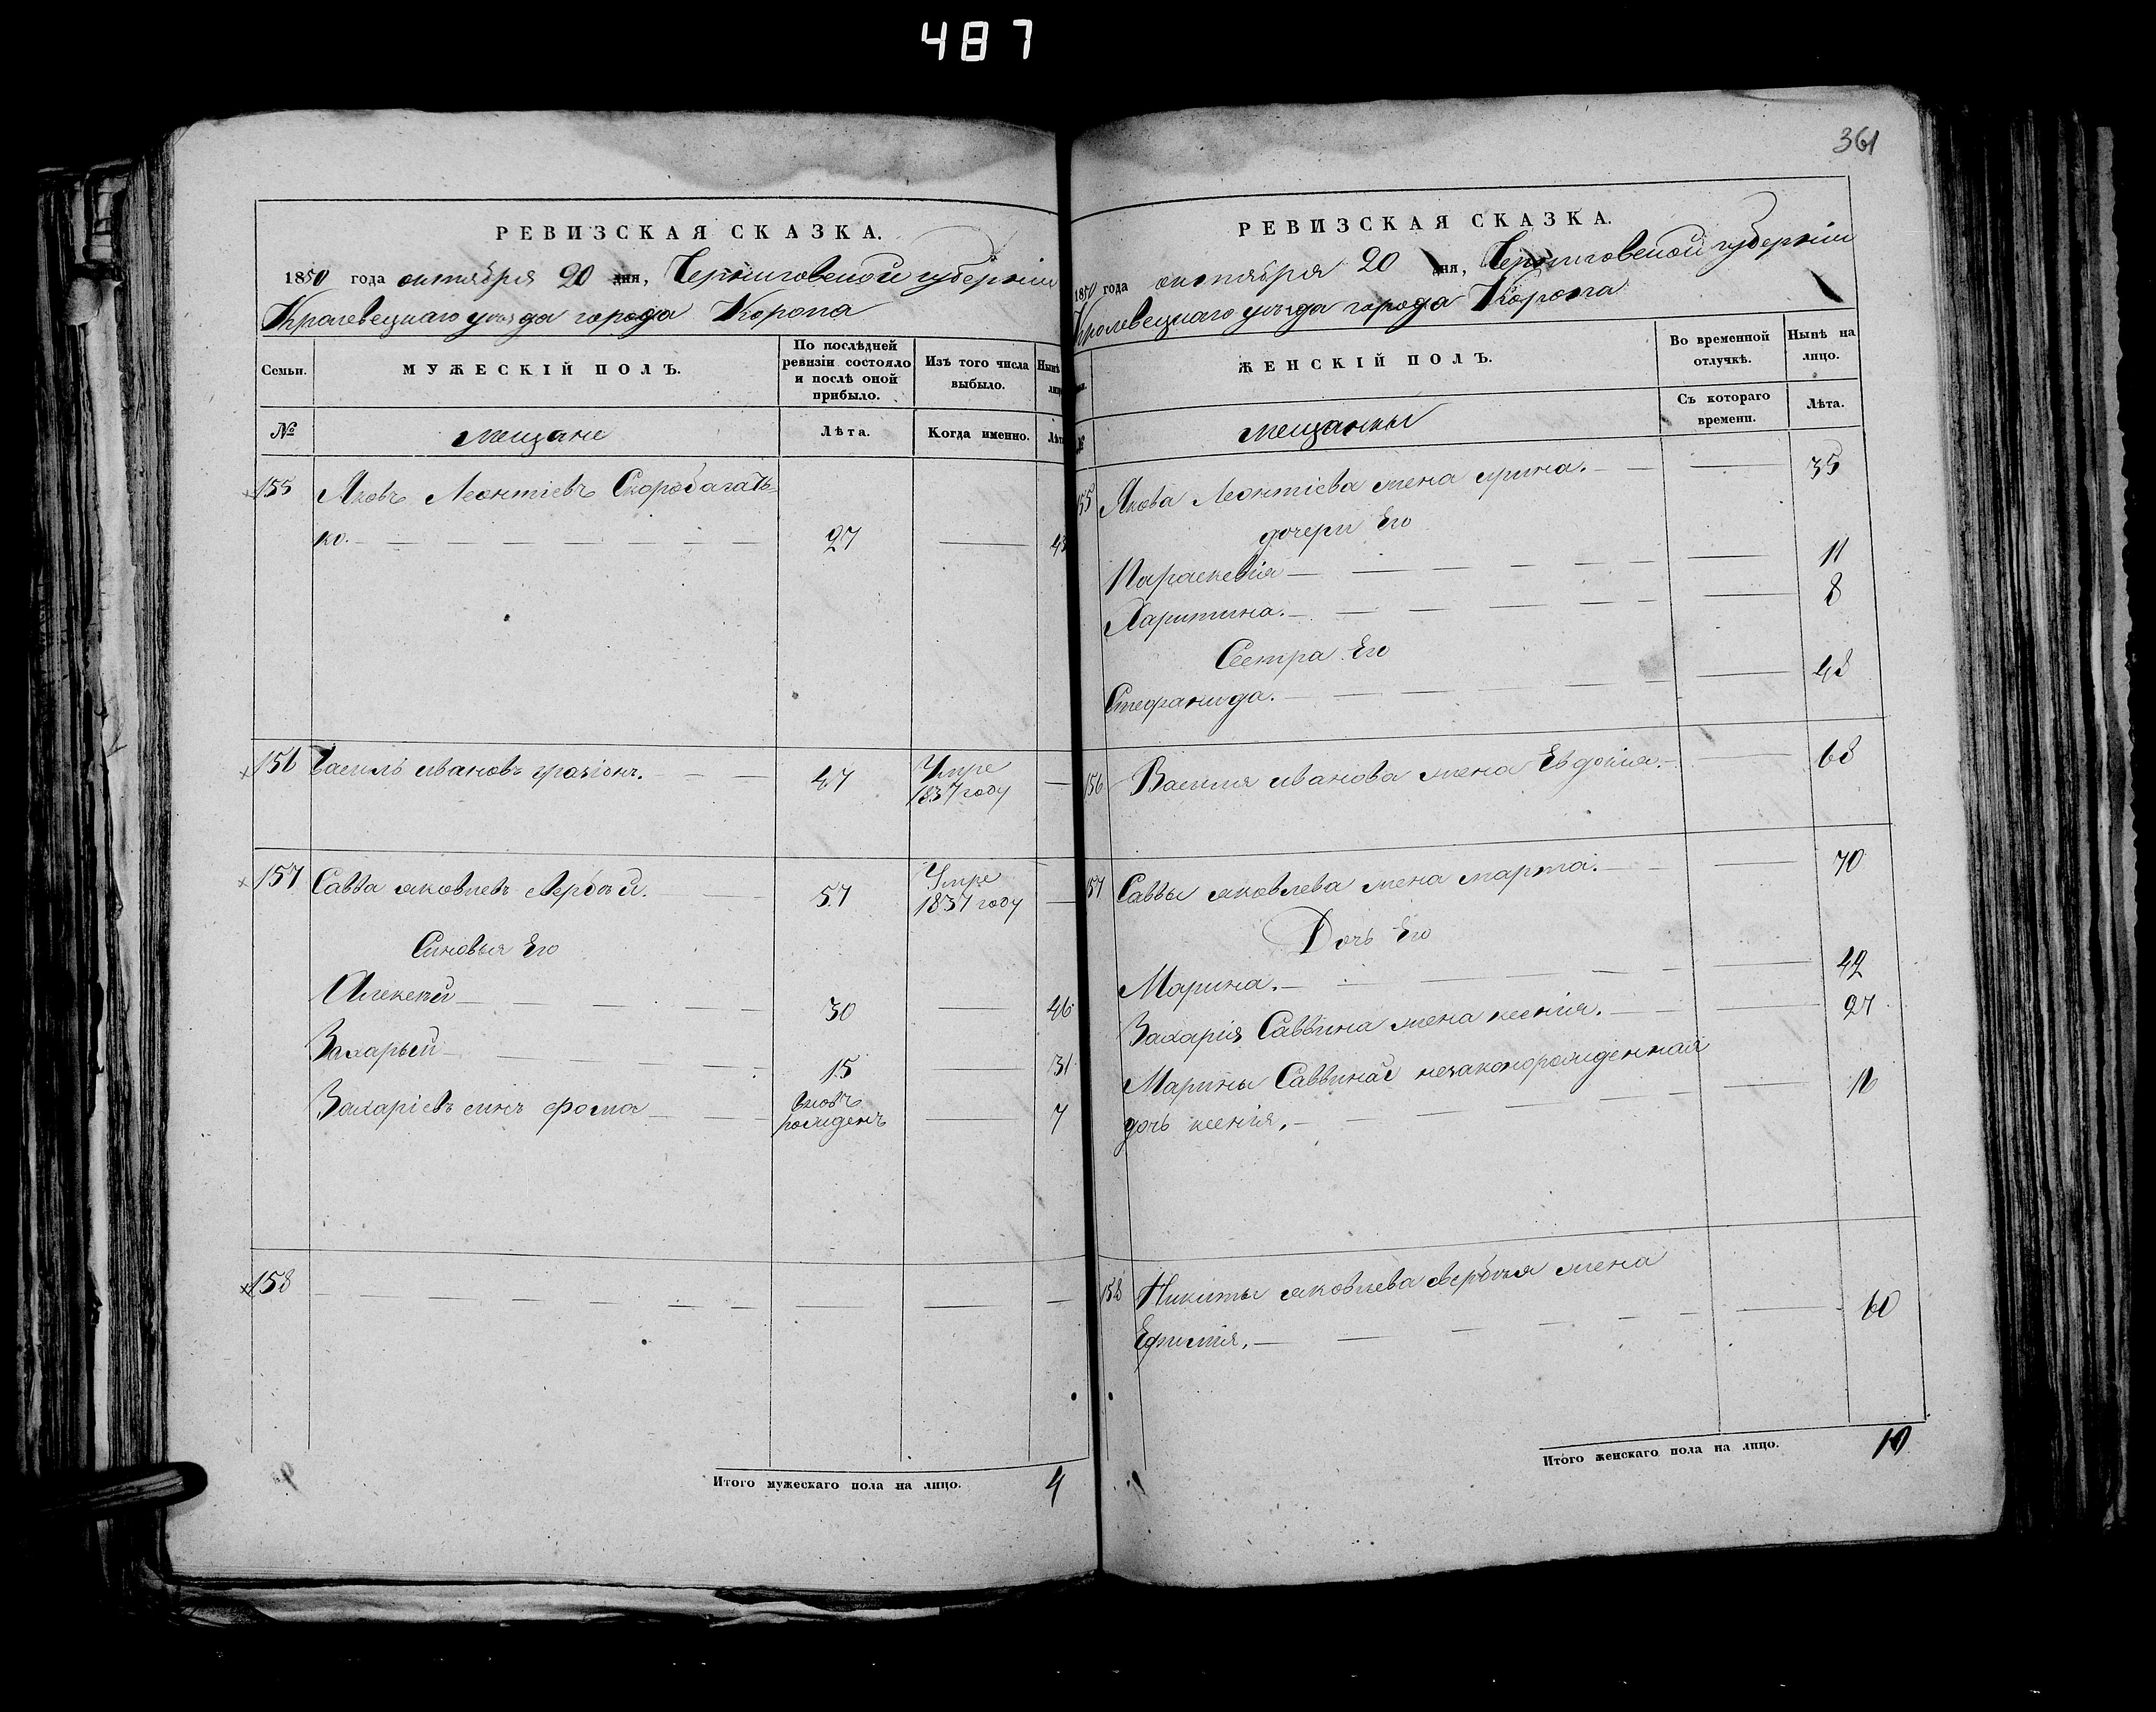 487
РЕВИЗСКАЯ СКАЗКА.
1850 года октября 20 дня, Черниговской губерніи
Кролевецкаго уѣзда города Коропа
Семьи.
МУЖЕСКІЙ ПОЛЪ.
По послѣдней ревизіи состояло и послѣ оной прибыло.
Изъ того числа выбыло.
Нынѣ
лицо
№
мещане
Лѣта.
Когда именно.
Лѣта
155 Яковъ Леонтіевъ Скоробагатъ-
ко. 27 43
156 Василь Ивановъ 47 Умре
1837 году
157 Савва Яковлевъ Вербій. 57 Умре
1837 году
Синовья Его
Алексей 30 46
Захарьій 15 31
Захаріевъ синъ Фома вновь
рожденъ 7
158
Итого мужескаго пола на лицо. 4
361
РЕВИЗСКАЯ СКАЗКА.
1850 года октября 20 дня, Черниговской губерніи
Кролевецкаго уѣзда города Коропа
ЖЕНСКІЙ ПОЛЪ.
Во временной отлучкѣ.
Нынѣ на лицо.
№
мещанки
Съ котораго времени.
Лѣта.
155 Якова Леонтіева жена Ирина. 35
дочери Его
Параскевія 11
Харитина. 8
Сестра Его
Стефанида. 48
156 Василия Иванова жена Евдокія. 68
157 Саввы Яковлева жена Марта. 70
Дочь Его
Марина. 42
Захарія Саввина жена Ксенія. 27
Марины Саввиной незаконорожденная
дочь Ксенія. 12
158 Никиты Яковлева Вербія жена
Ефимія. 60
Итого женскаго пола на лицо. 10